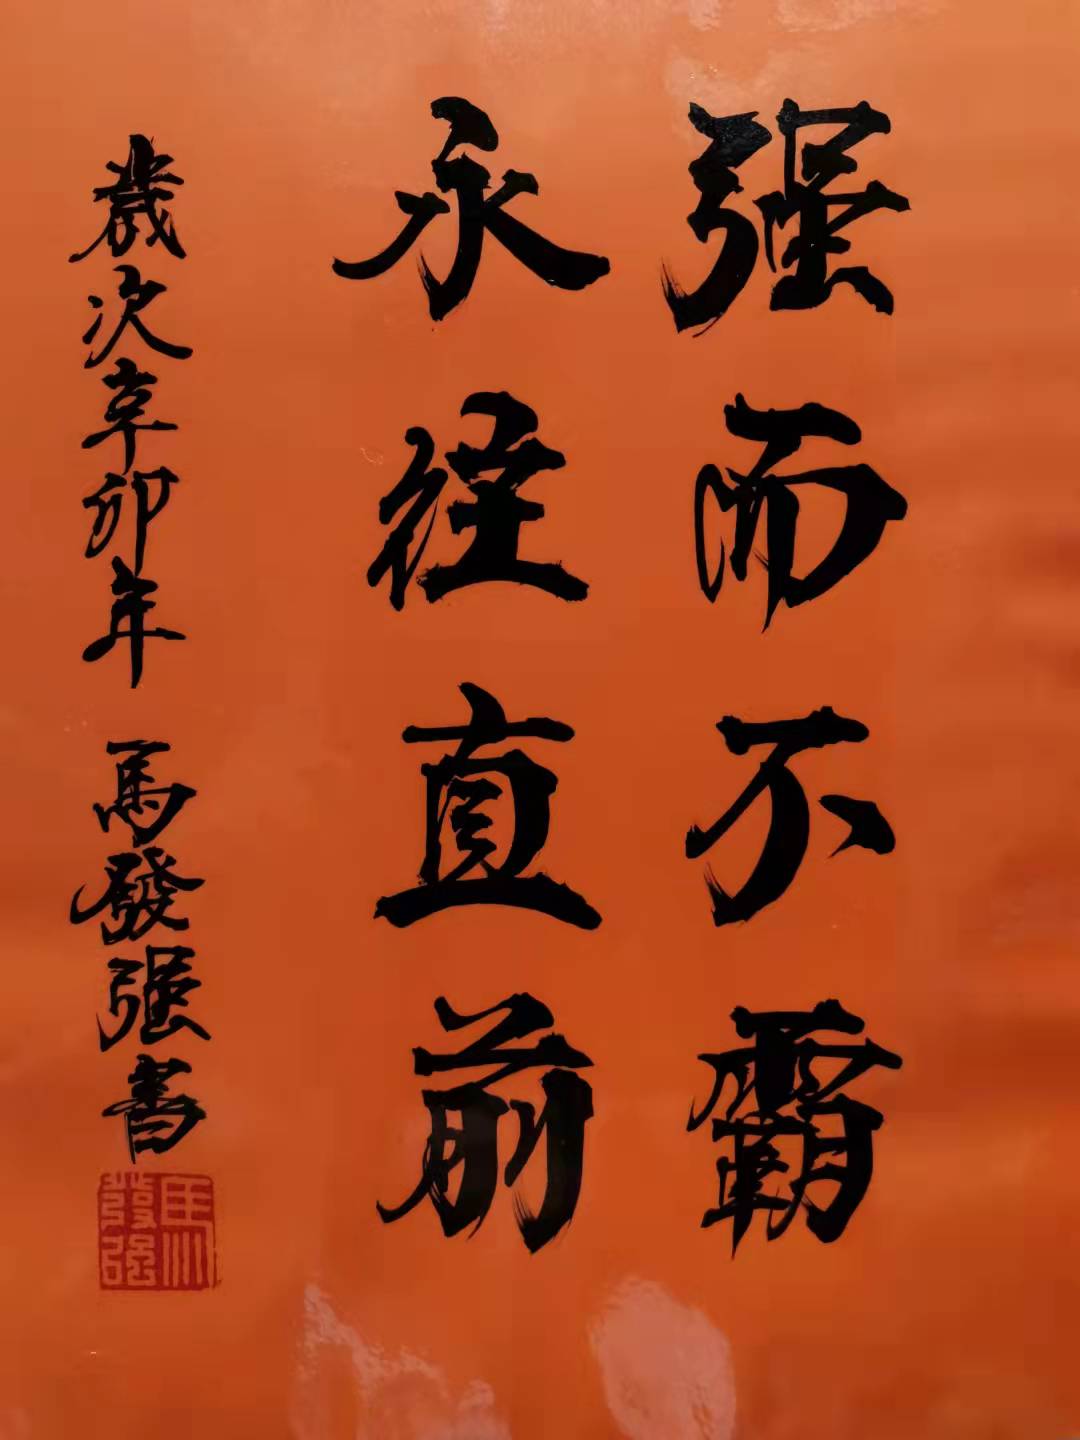 强而不霸
永往直前
歲次辛卯年 馬發强書
馬發强